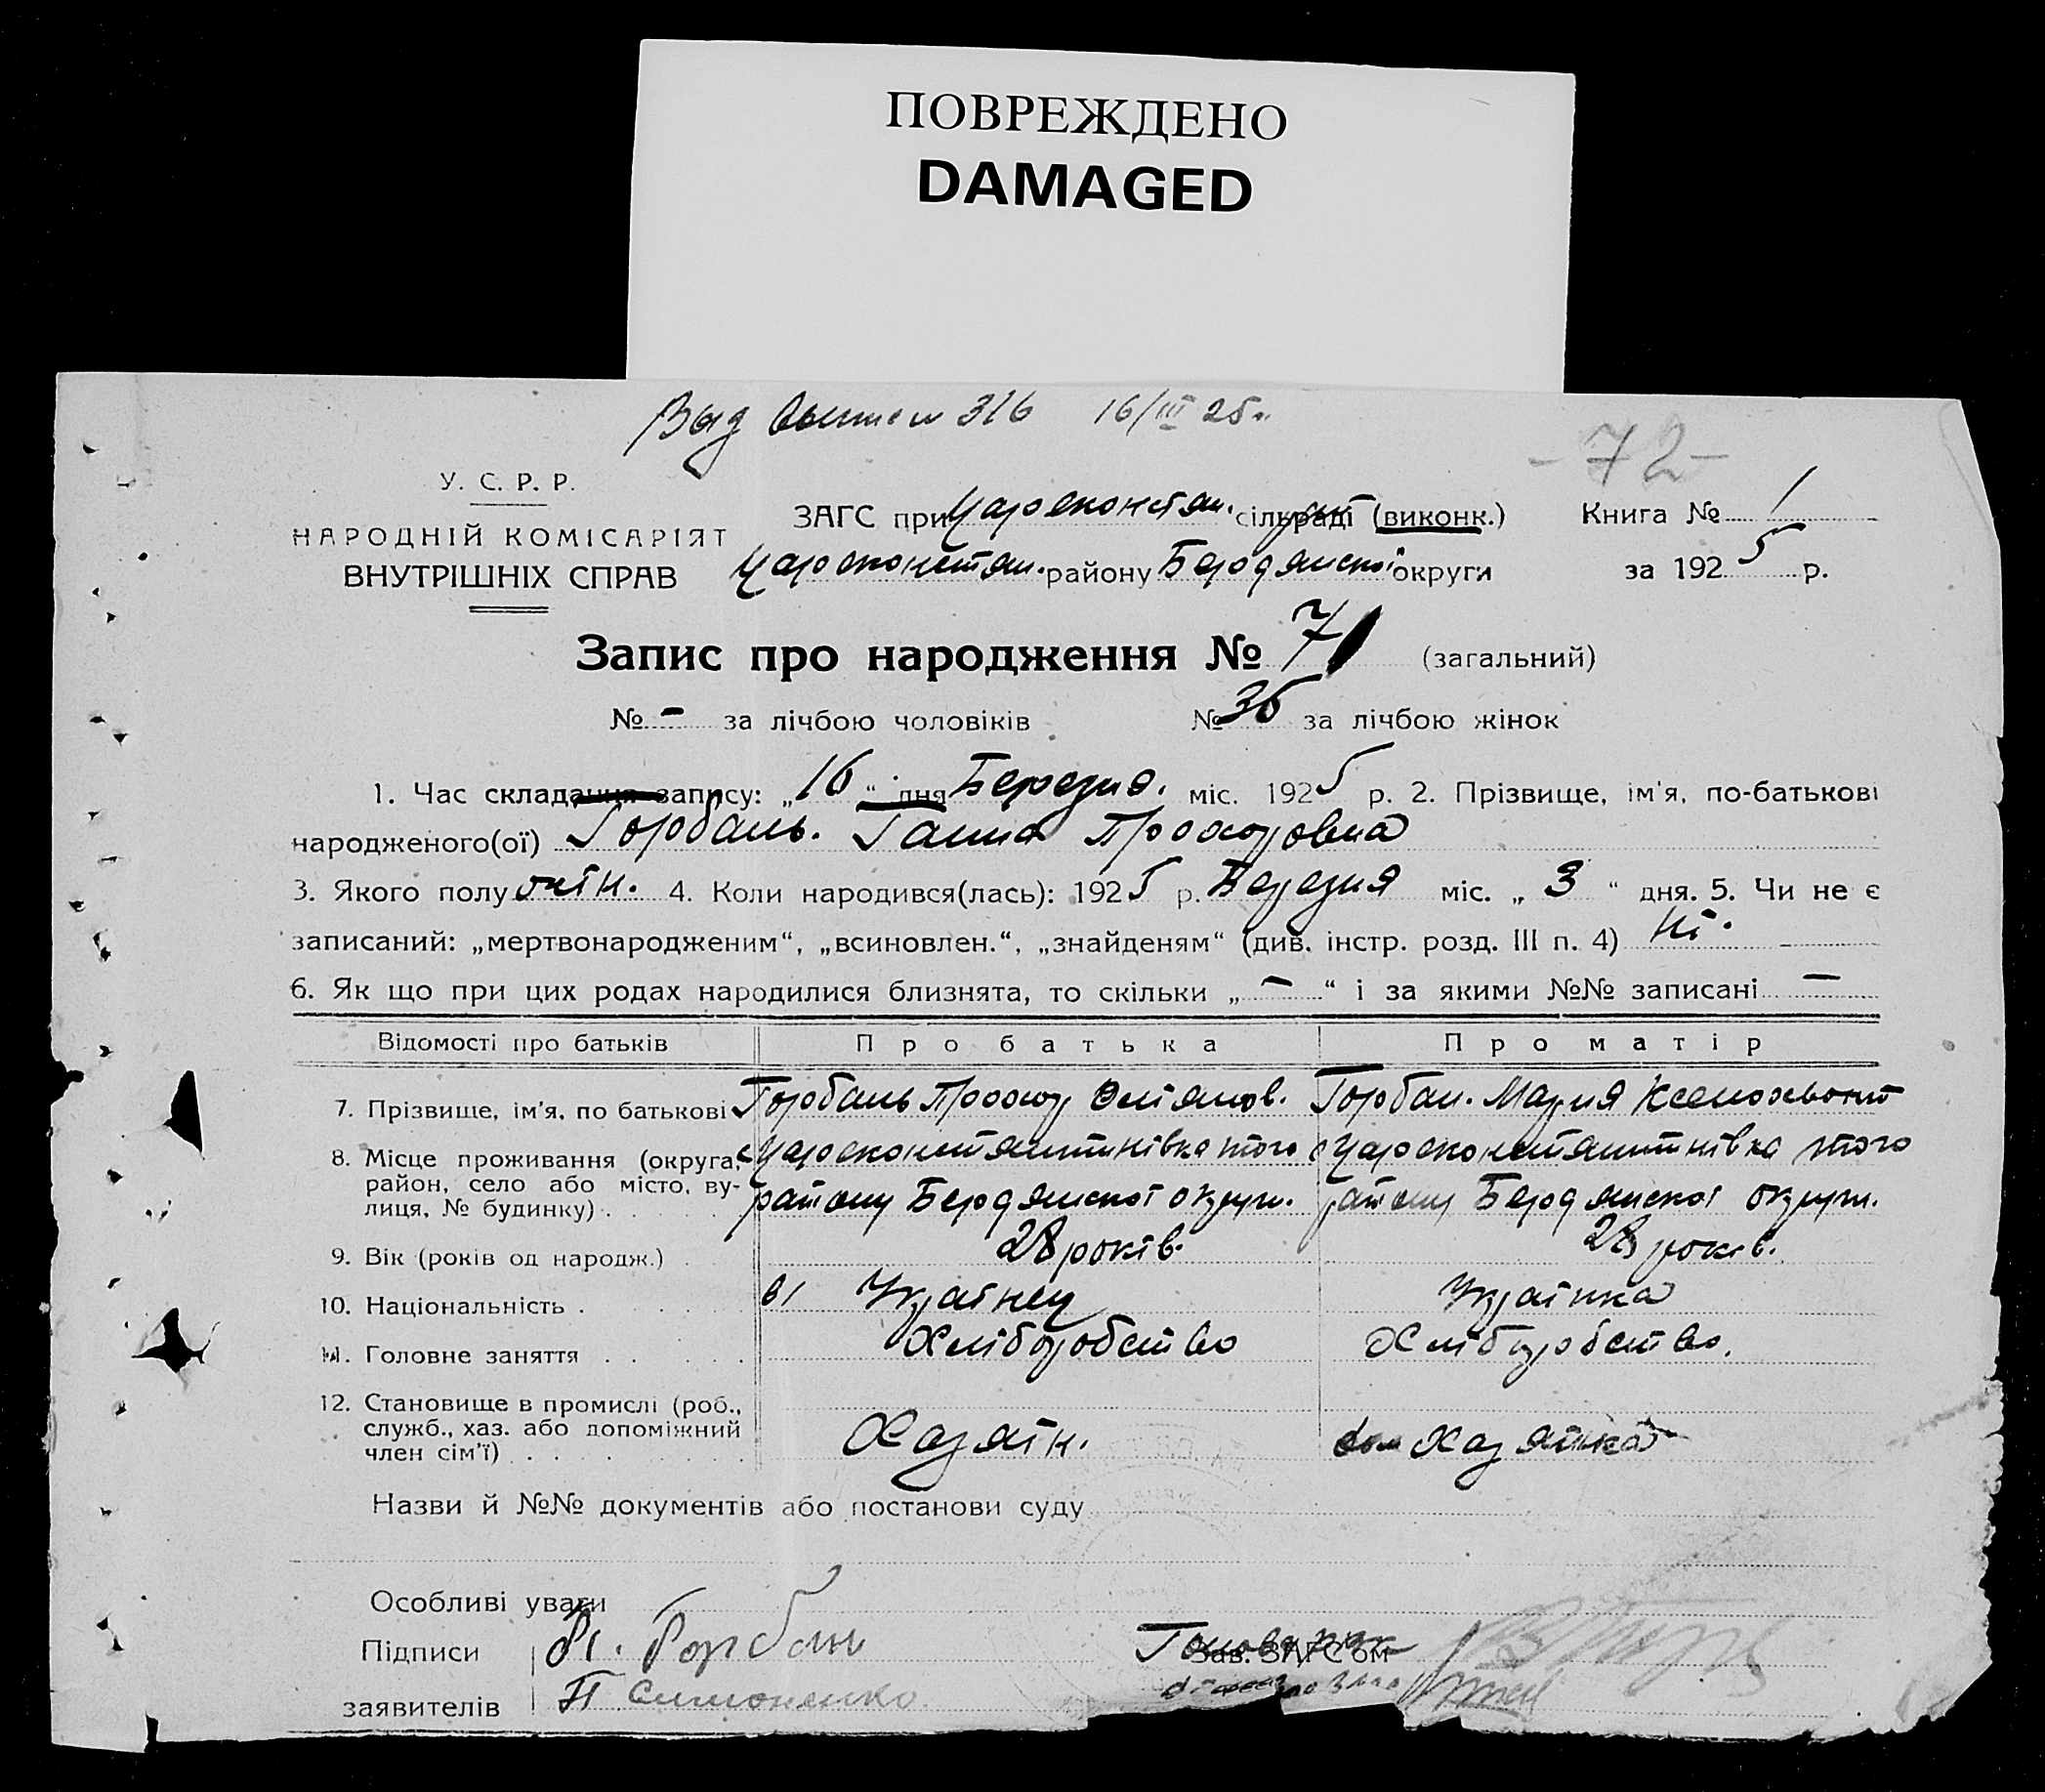 ПОВРЕЖДЕНО
DAMAGED
316 16/III 25 г.
-72-
У. С. Р. Р.
НАРОДНІЙ КОМІСАРІЯТ
ВНУТРІШНІХ СПРАВ
ЗАГС при Цареконстян. сільраді (виконк.) Книга № 1
Цареконстян. району Бердянської округи за 1925 р.
Запис про народження № 71 (загальний)
№ - за лічбою чоловіків № 36 за лічбою жінок
1. Час складання запису: „16“ дня Березня. міс. 1925 р. 2. Прізвище, ім'я, по-батькові
народженого(ої) Горбань. Ганна Прохоровна
3. Якого полу жін. 4. Коли народився(лась): 1925 р. Березня міс. „3“ дня. 5. Чи не є
записаний: „мертвонародженим“, „всиновлен.“, „знайденям“ (див. інстр. розд. III п. 4) Ні.
6. Як що при цих родах народилися близнята, то скільки „—“ і за якими №№ записані —
Відомості про батьків Про батька Про матір
7. Прізвище, ім'я, по батькові Горбань Прохор Горбан. Мария
8. Місце проживання (округа, район, село або місто, вулиця, № будинку) Цареконстянтинівка того Цареконстянтинівка того
району Бердянської округи. району Бердянської округи.
9. Вік (років од народж.) 28 років. 28 років.
10. Національність Українец Українка
11. Головне заняття Хліборобство Хліборобство.
12. Становище в промислі (роб., служб., хаз. або допоміжний член сім'ї) Хазяїн. Хазяйка
Назви й №№ документів або постанови суду
Особливі уваги
Підписи Горбань Зав. ЗАГС'ом
заявителів П Симоненко